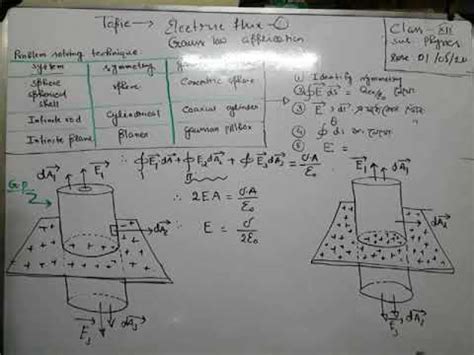 Topic → Electric flux
Gauss law application
Class - XII
Sub. Physics
Date 01/05/20
Problem solving technique:
system symmetry
sphere spherical shell sphere Concentric sphere
Infinite rod cylindrical coaxial cylinder
Infinite plane planes gaussian pillbox
① Identify symmetry
② ∮E⃗ ds⃗ = Qen/ε₀
③ E⃗ ds⃗
④ ∮ ds
⑤ E =
∴ ∮E⃗₁dA⃗ + ∮E⃗₂dA⃗₂ + ∮E⃗₃dA⃗₃ = σ.A/ε₀
∴ 2EA = σ.A/ε₀
∴ E = σ/2ε₀
G.P
dA⃗₁ E⃗₁
dA⃗₂
E⃗₃ dA⃗₃
E⃗₁ dA⃗₁
dA⃗₂
E⃗₃ dA⃗₃